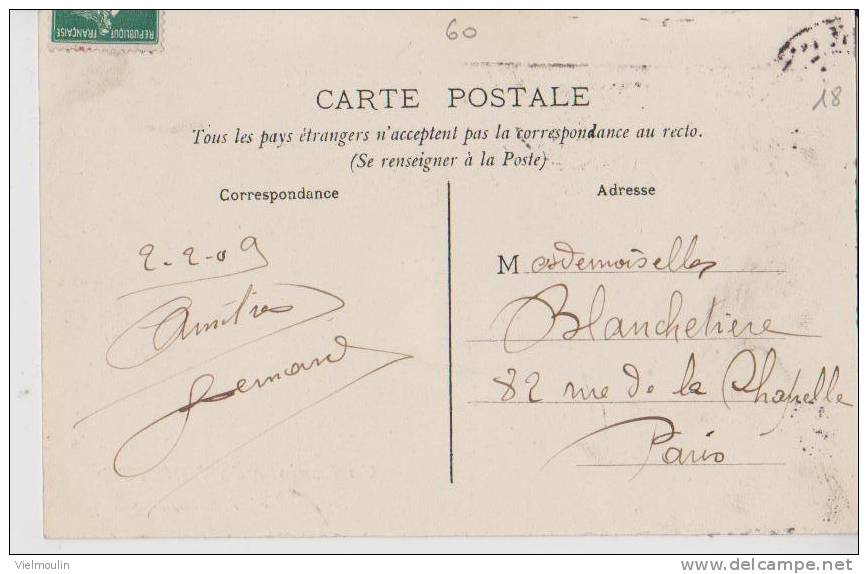 REPUBLIQUE FRANÇAISE
60
18
CARTE POSTALE
Tous les pays étrangers n'acceptent pas la correspondance au recto.
(Se renseigner à la Poste)
Correspondance
2-2-09
Amitiés
Adresse
Mesdemoiselles
Blanchetiere
82 rue de la Chapelle
Paris
Vielmoulin
delcampe.net